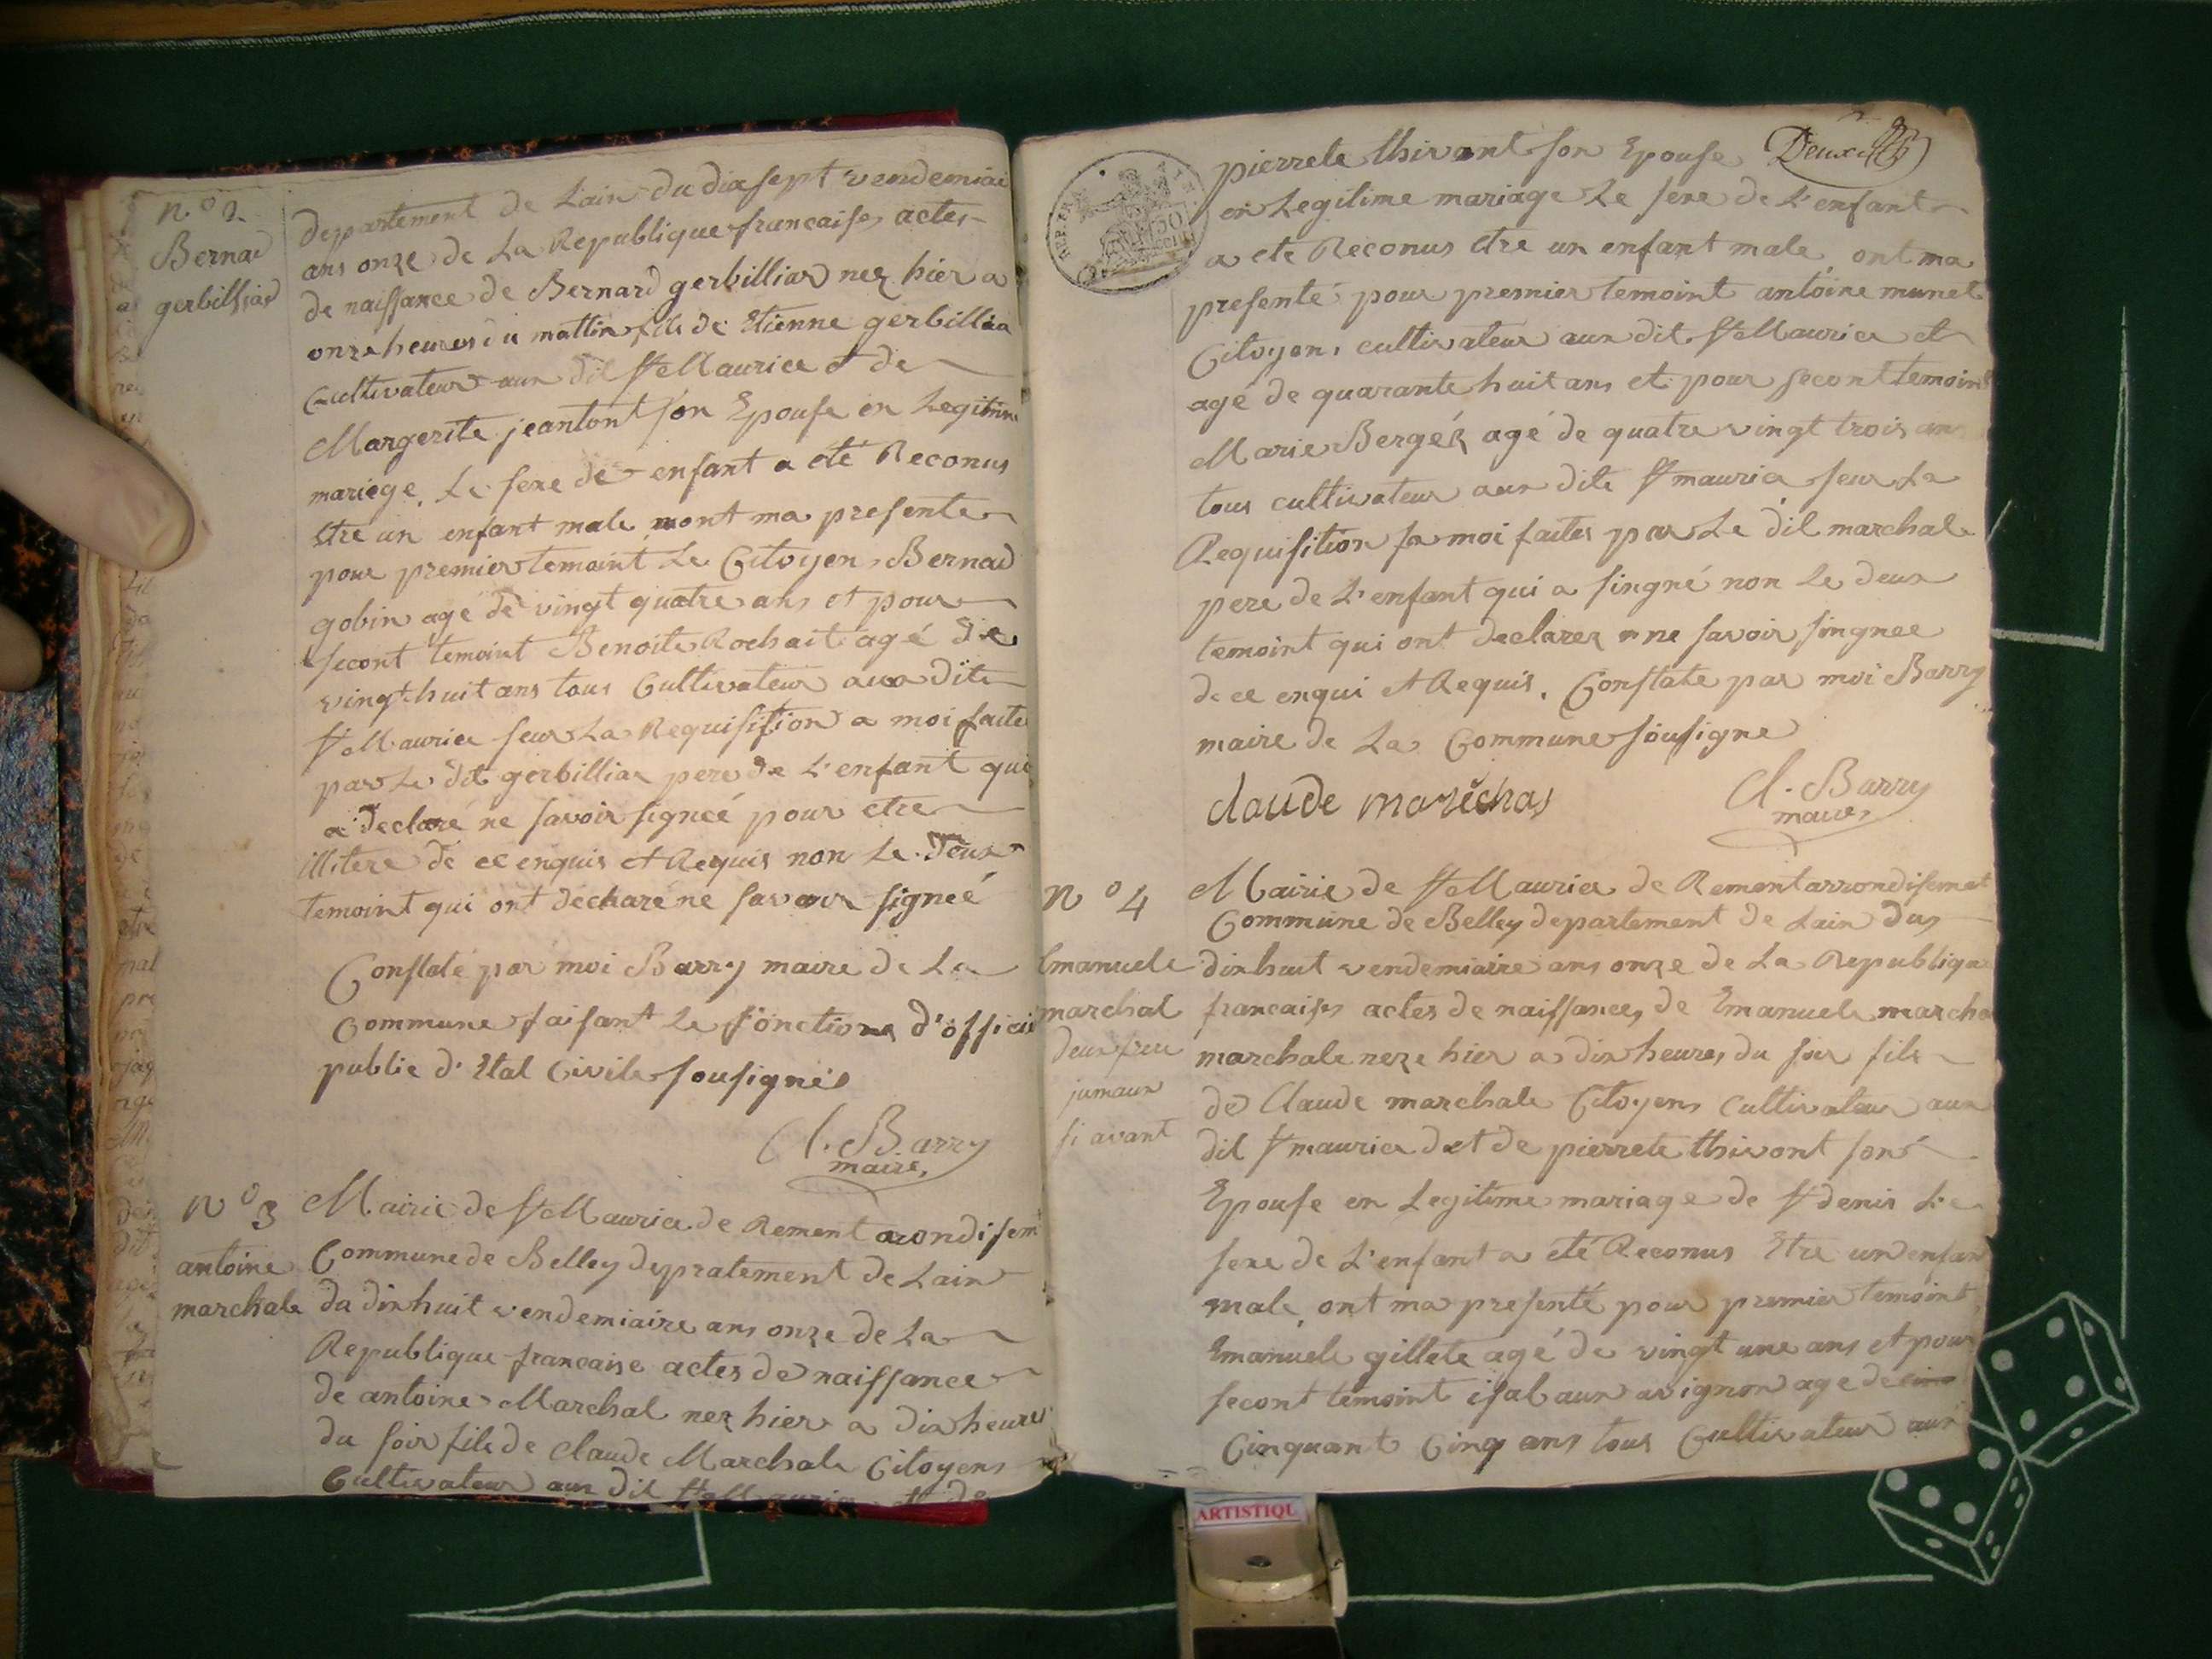 n.º 2.
Bernad
gerbilliad
departement de Lain du dix sept vendemiai
ans onze de La Republique francaise actes
de naissance de Bernard gerbilliar nez hier a
onze heures du mattin fils de Etienne gerbillia
Cultivateur aux dit St Maurice et de
Margerite jeantont son Epouse en Legitime
mariege. Le sexe de enfant a été Reconus
Etre un enfant male, mont ma presente
pour premier temoint Le Citoyen Bernad
gobin age de vingt quatre ans et pour
secont temoint Benoite Rochait agé de
vingt huit ans tous Cultivateur aux dite
St Maurice seur La Requisition a moi faite
par Le dit gerbilliar pere de L'enfant qui
a declaré ne savoir signeé pour etre
illitere de ce enquis et Requis non Le deux
temoint qui ont declaré ne savoir signeé
Constaté par moi Barry maire de La
Commune faisant Le fonctions d'officie
public d'Etat Civile sousigné
Cl. Barry
maire,
n º 3
antoine
marchale
Mairie de St Maurice de Rement arondisemt
Commune de Belley depratement de Lain
da dixhuit vendemiaire ans onze de La
Republique francaise actes de naissance
de antoine Marchal nez hier a dix heures
du soir fils de Claude Marchale Citoyens
Cultivateur aux dit St Maurice et de
Deux
pierrete thivant son Epouse
en Legitime mariage Le sexe de L'enfant
a ete Reconus Etre un enfant male, ont ma
presenté pour premier temoint antoine munet
Citoyens cultivateur aux dit St Maurice et
agé de quarante huit ans et pour secont temoint
Marie Bergér agé de quatre vingt trois ans
tous cultivateur aux dite St maurice seur La
Requisition sa moi faites par Le dit marchale
pere de L'enfant qui a singné non Le deux
temoint qui ont declarez ne savoir singnee
de ce enqui et Requis. Constate par moi Barry
maire de La Commune sousigne
claude maréchal
Cl. Barry
maire,
n º 4
Emanuele
marchal
deux freu
jumaux
si avant
Mairie de St Maurice de Rement arrondisemet
Commune de Belley departement de Lain dus
dixhuit vendemiaire ans onze de La Republique
francaise actes de naissance, de Emanuele marcha
marchale neze hier a dix heures du soir fils
de Claude marchale Citoyens Cultivateur aux
dit St maurice det de pierrete thivont son
Epouse en Legitime mariage de St denis Le
sexe de L'enfant a été Reconus Etre un enfan
male, ont ma presenté pour premier temoint
Emanuele gillete agé de vingt une ans et pour
secont temoint isabaux avignon age de
Cinquant Cinq ans tous Cultivateur aux
ARTISTIQU